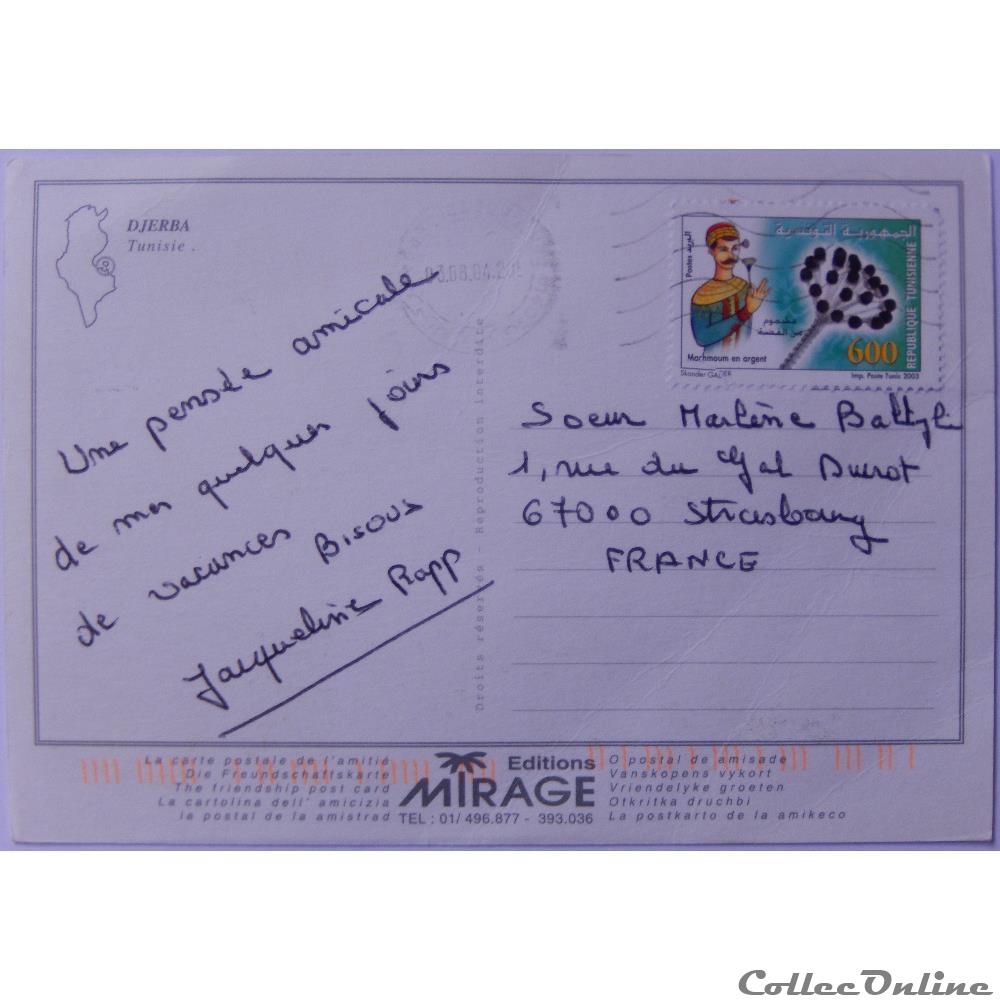 DJERBA
Tunisie .
Une pensée amicale
de mes quelques jours
de vacances
Bisous
Jacqueline Rapp
Droits réservés - Reproduction interdite
03.08.04
البريد
Postes
الجمهورية التونسية
REPUBLIQUE TUNISIENNE
مشموم
من الفضة
600
Marhmoum en argent
Skander GADER
Imp. Poste Tunis 2003
Soeur Marlène
1, rue du Gal
67000 Strasbourg
FRANCE
La carte postale de l'amitié
Die Freundschaftskarte
The friendship post card
La cartolina dell' amicizia
la postal de la amistrad
Editions
MIRAGE
TEL : 01/ 496.877 - 393.036
O postal de amisade
Vanskopens vykort
Vriendelyke groeten
Otkritka druchbi
La postkarto de la amikeco
CollecOnline